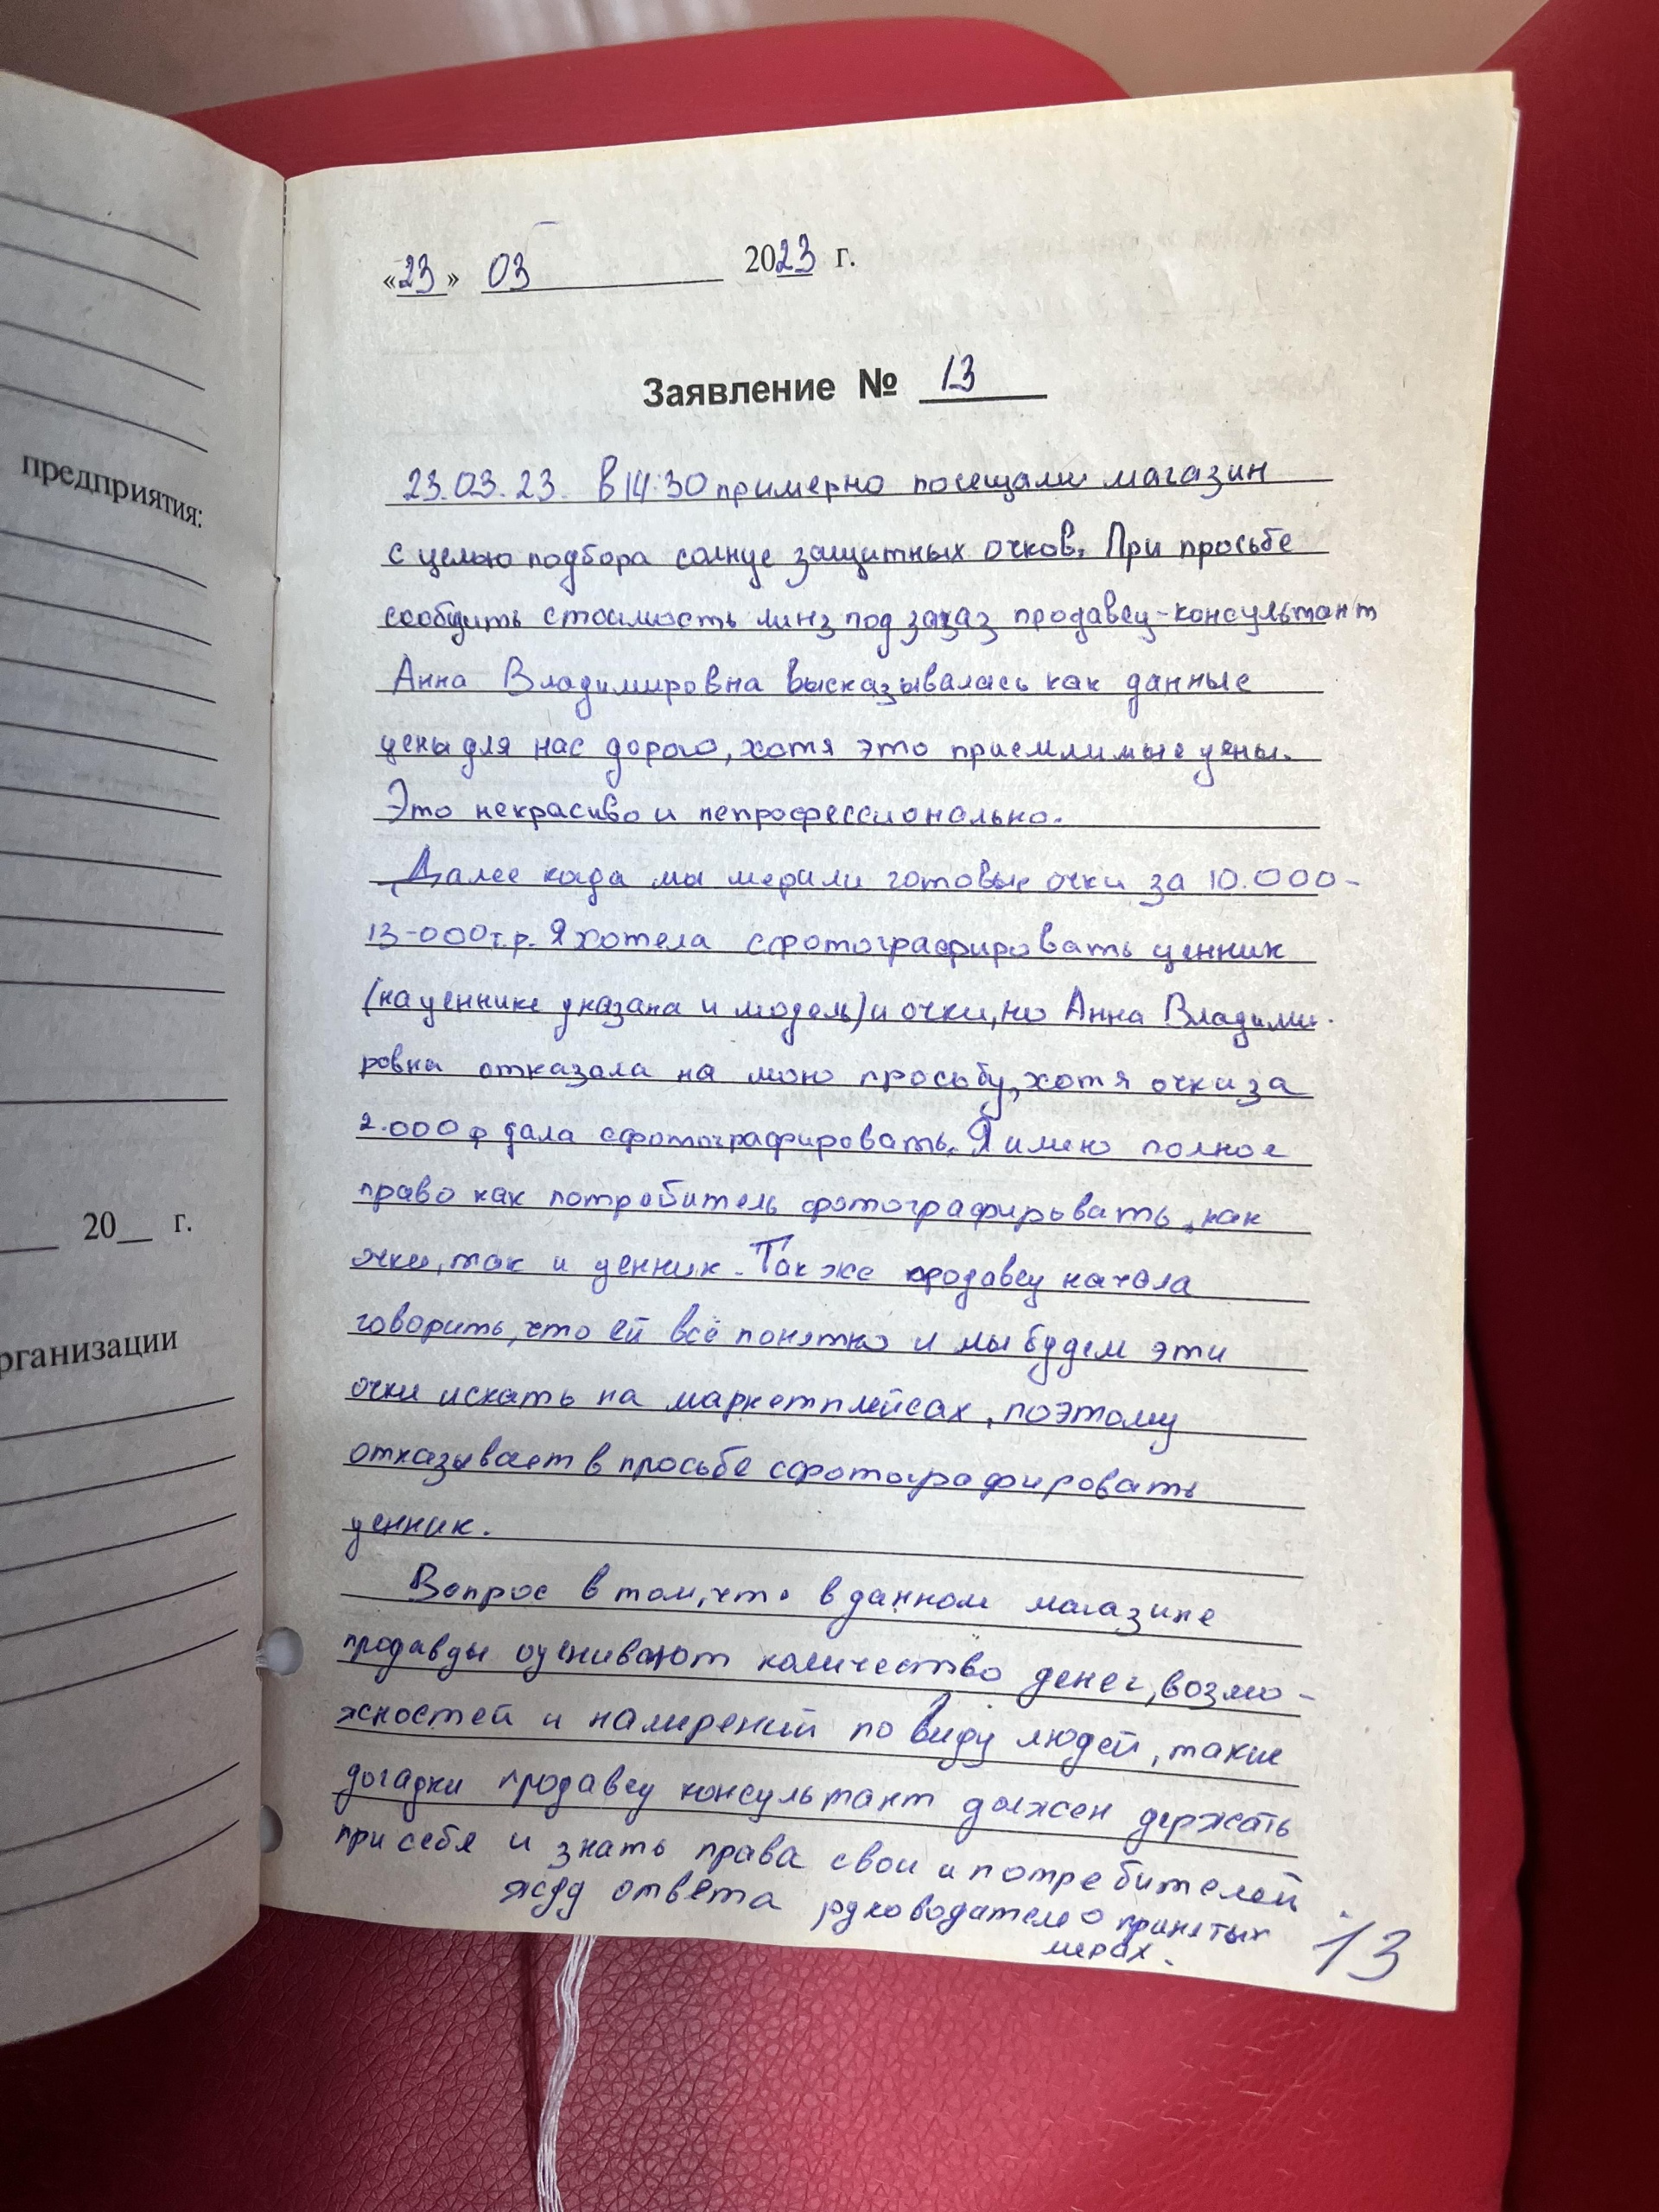 предприятия:
20__ г.
рганизации
«23» 03 2023 г.
Заявление № 13
23.03.23. в 14:30 примерно посещали магазин
с целью подбора солнце защитных очков. При просьбе
сообщить стоимость линз под заказ продавец-консультант
Анна Владимировна высказывалась как данные
цены для нас дорого, хотя это приемлимые цены.
Это некрасиво и непрофессионально.
Далее когда мы мерили готовые очки за 10.000-
13-000т.р. Я хотела сфотографировать ценник
(на ценнике указана и модель) и очки, но Анна Владими-
ровна отказала на мою просьбу, хотя очки за
2.000 р дала сфотографировать. Я имею полное
право как потребитель фотографировать, как
очки, так и ценник. Так же продавец начала
говорить, что ей всё понятно и мы будем эти
очки искать на маркетплейсах, поэтому
отказывает в просьбе сфотографировать
ценник.
Вопрос в том, что в данном магазине
продавцы оценивают количество денег, возмо-
жностей и намерений по виду людей, такие
догадки продавец консультант должен держать
при себе и знать права свои и потребителей
жду ответа руководителю о принятых
мерах.
13